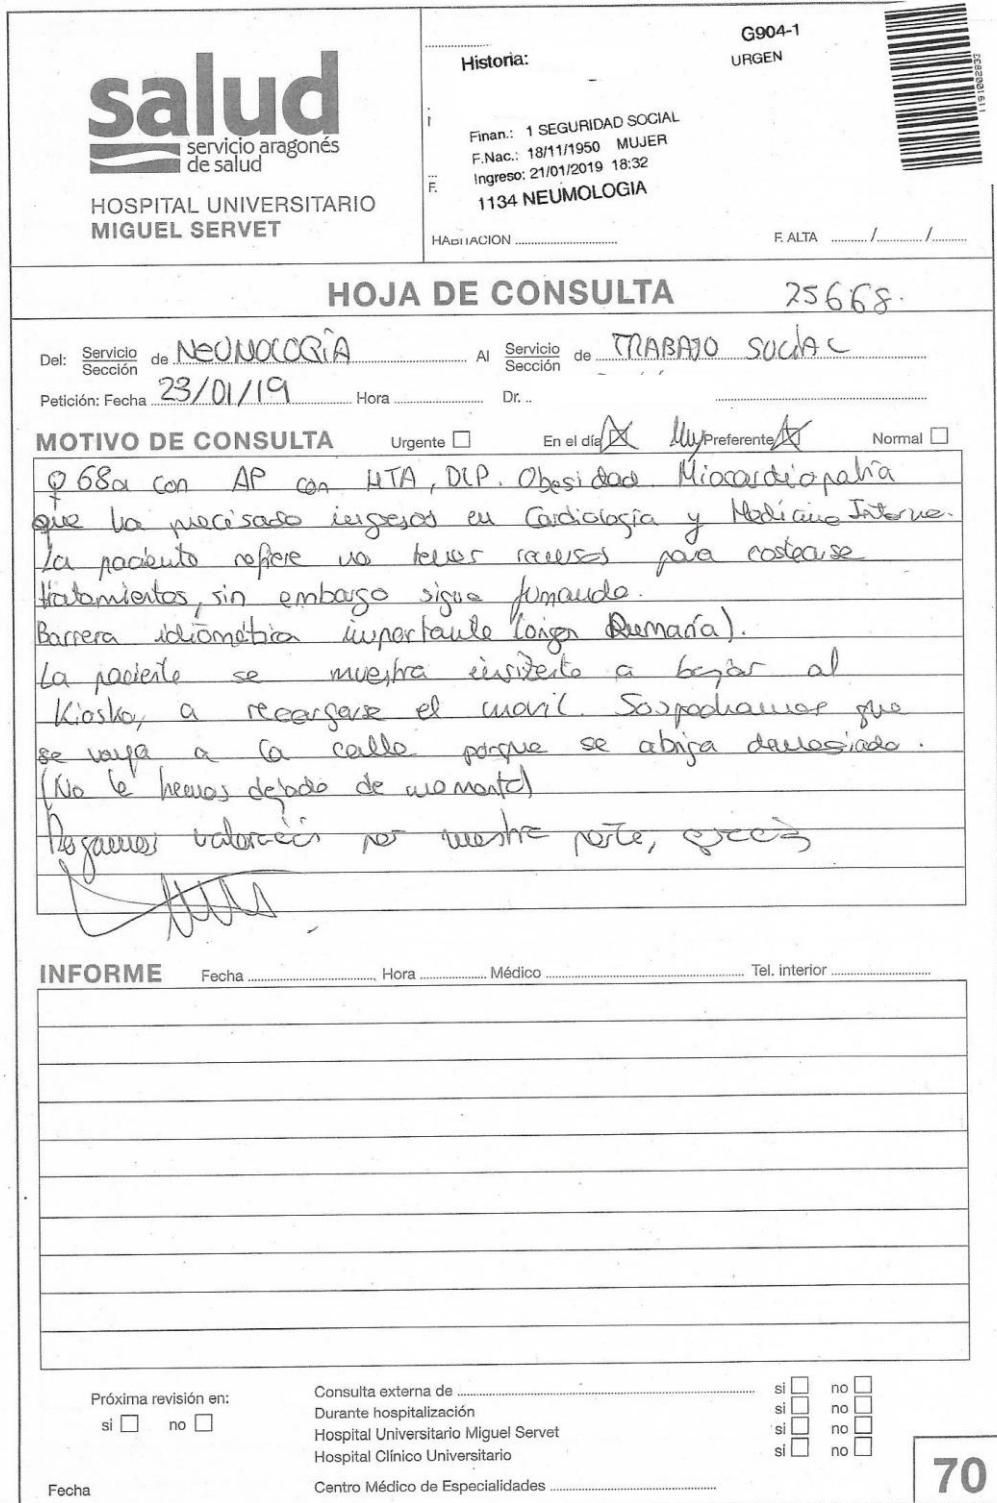 salud
servicio aragonés
de salud
HOSPITAL UNIVERSITARIO
MIGUEL SERVET
G904-1
Historia:
URGEN
Finan.: 1 SEGURIDAD SOCIAL
F.Nac.: 18/11/1950 MUJER
Ingreso: 21/01/2019 18:32
1134 NEUMOLOGIA
F.
HABITACION
F. ALTA / /
1191002833
HOJA DE CONSULTA 25668.
Del: Servicio Sección de NEUMOLOGÍA Al Servicio Sección de TRABAJO SOCIAL
Petición: Fecha 23/01/19 Hora Dr.
MOTIVO DE CONSULTA Urgente En el día Muy Preferente Normal
♀ 68a con AP con HTA, DLP. Obesidad. Miocardiopatía
que ha precisado ingresos en Cardiología y Medicina Interna.
La paciente refiere no tener recursos para costearse
tratamientos, sin embargo sigue fumando.
Barrera idiomática importante (origen Rumanía).
La paciente se muestra insistente a bajar al
Kiosko, a recargarse el movil. Sospechamos que
se vaya a la calle porque se abriga demasiado.
(No le hemos dejado de momento)
Rogamos valoración por vuestra parte, gracias
INFORME Fecha Hora Médico Tel. interior
Próxima revisión en:
si no
Consulta externa de si no
Durante hospitalización si no
Hospital Universitario Miguel Servet si no
Hospital Clínico Universitario si no
Fecha
Centro Médico de Especialidades
70